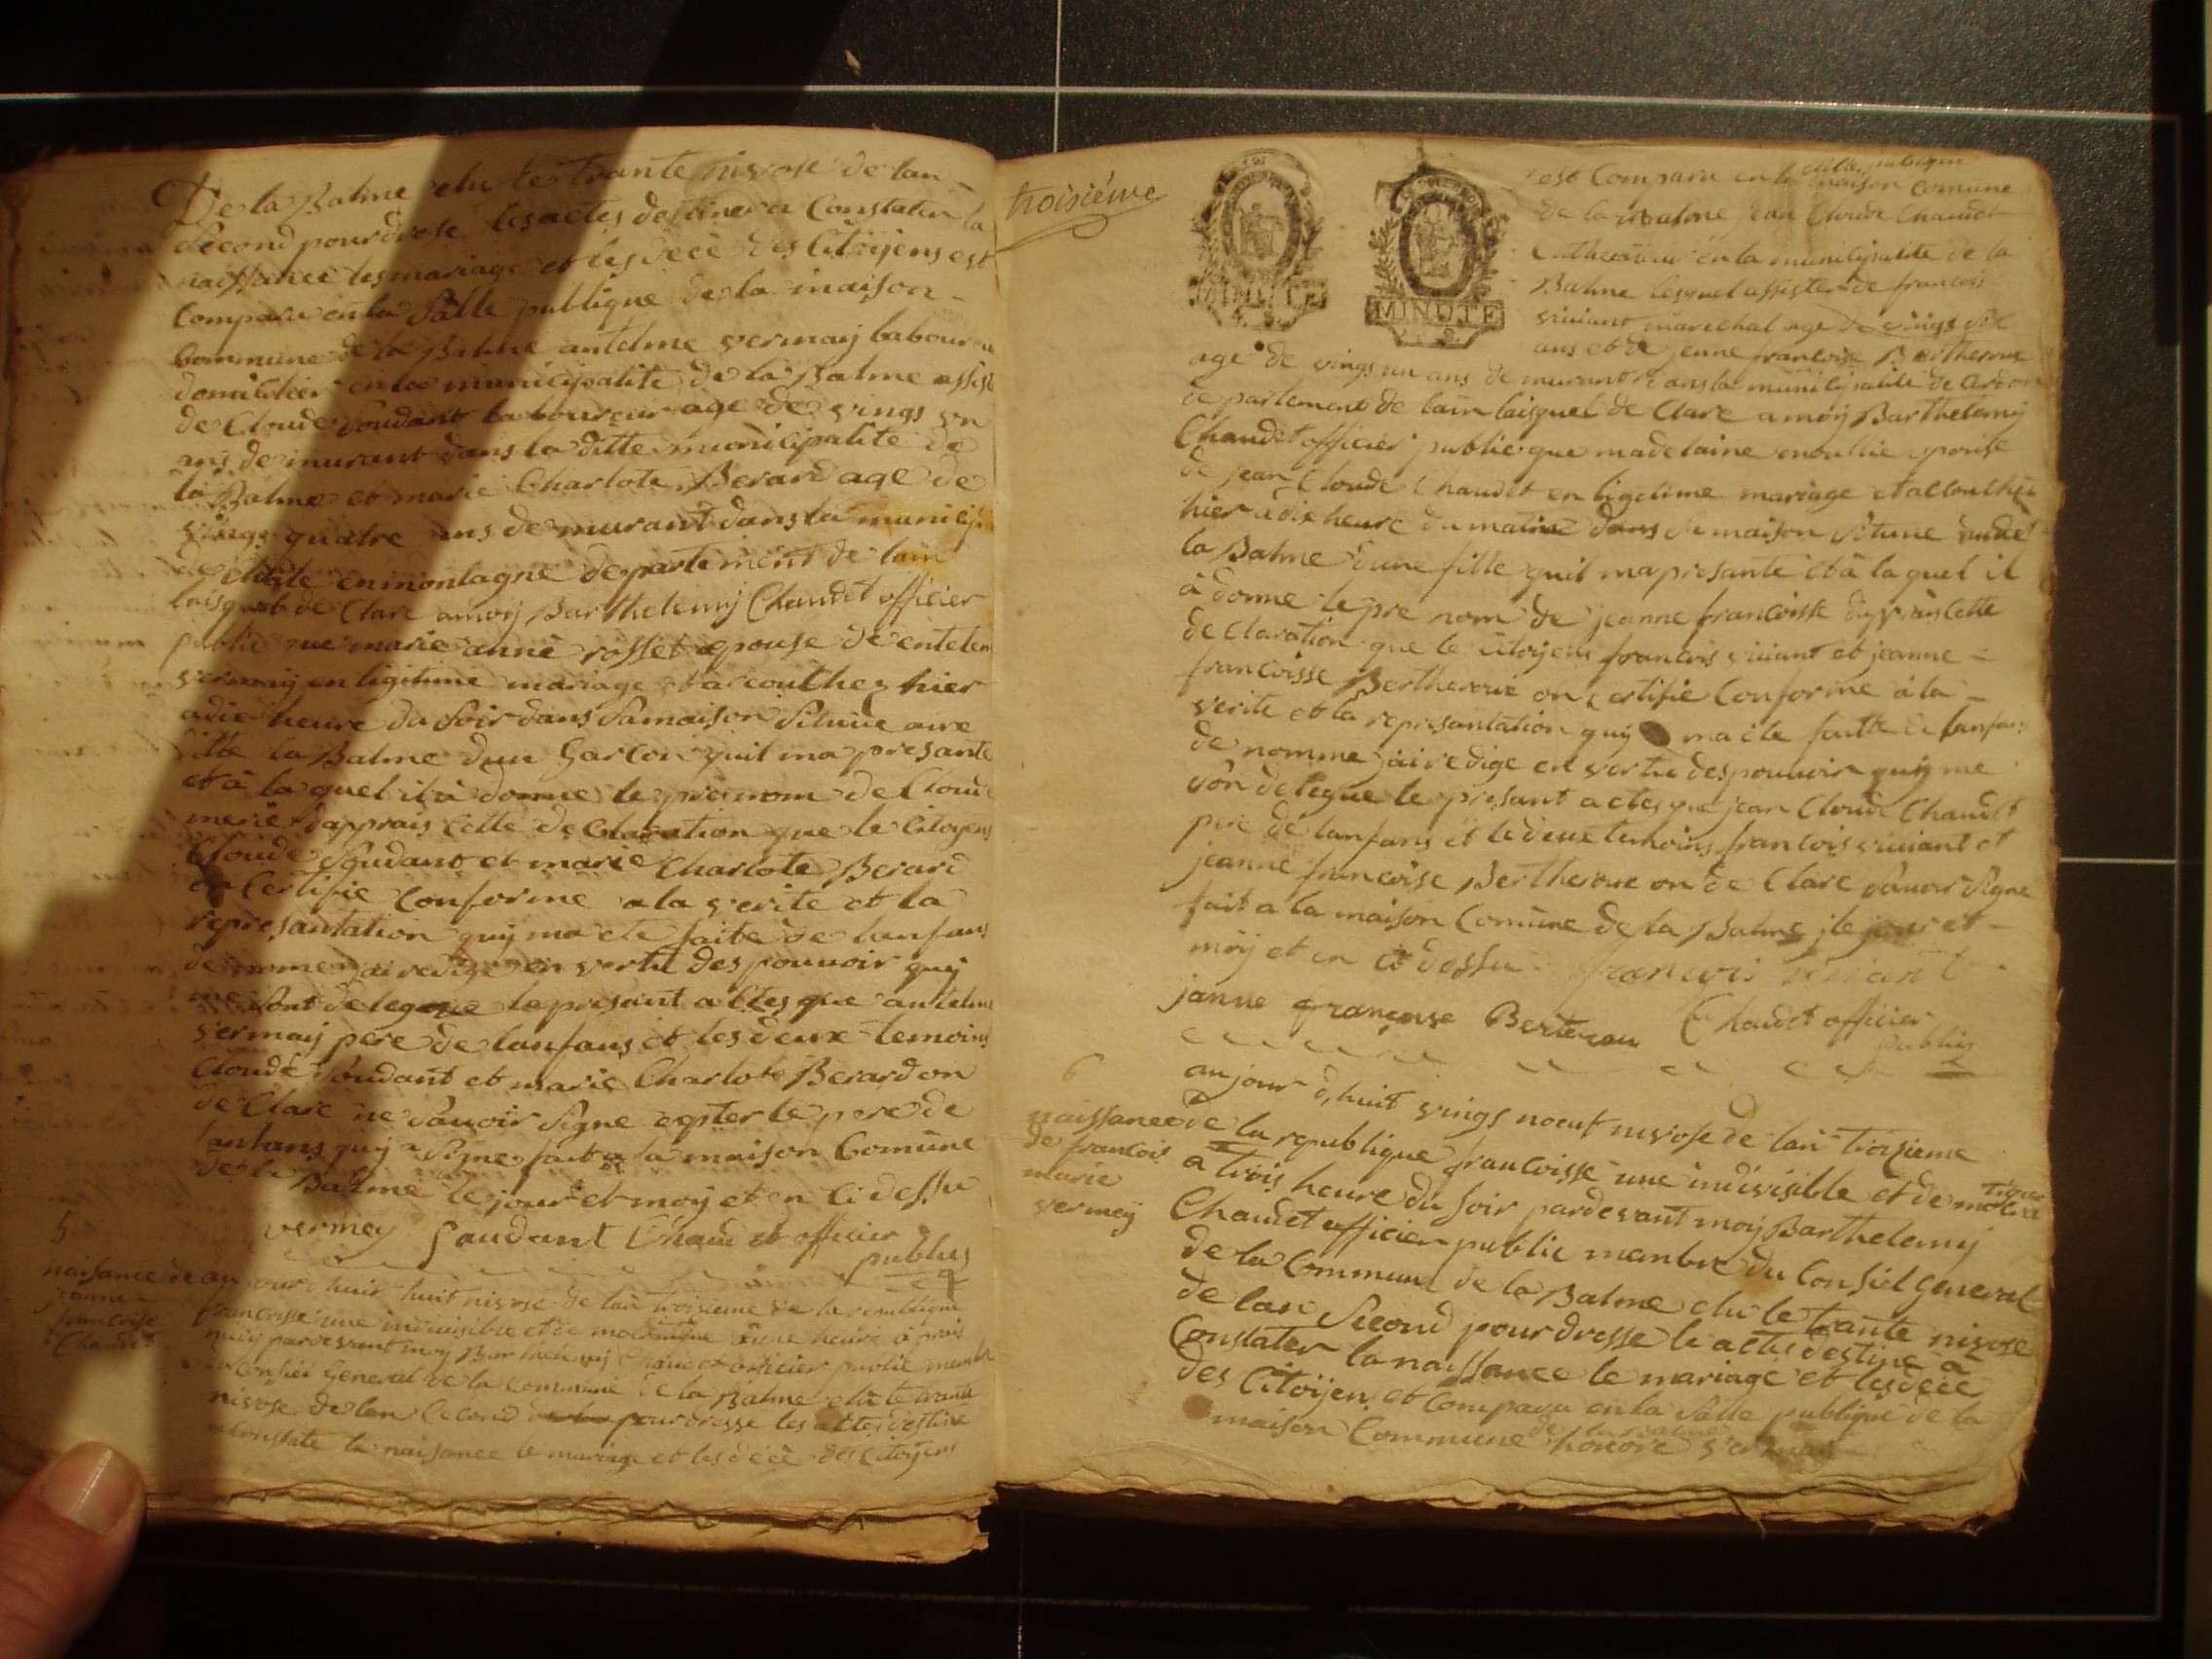 De la Balme elu le trante nivose de lan
second pour drese les actes destiner a Constater la
naissance les mariage et les decè des Citoÿens est
Comparu en la Salle publique de la maison
Commune de la Balme antelme vermaÿ laboureur
domicilier en la municipalité de la Balme assisté
de Cloude Soudant laboureur age de vings un
ans demurant dans la ditte municipalite de
la Balme et marie Charlote Berard age de
vings quatre ans demurant dans la municipa
de en montagne departement de lain
laisquel de Clare amoÿ Barthelemÿ Chaudet officier
public que marie anne rosset epouse de entelem
vermaÿ en ligitime mariage et acouthez hier
adie heure du soir dans sa maison Situüe au
la Balme dun Garcon quil ma presante
et à la quel il à donne le prénom de Cloud
merie dapprais Cette declaration que le Citoyens
Cloude Soudant et marie Charlote Berard
on Certifie Conforme a la verité et la
represantation quÿ ma ete faite de lanfans
denomme jai redige en vertu des pouvoir quÿ
me sont delegue le presant actes que antelme
vermaÿ pere de lanfans et les deux temoins
Cloude Soudant et marie Charlote Berard on
de Clare ne Savoir Signe expter le pere de
lanfans quÿ a Signe fait a la maison Comune
de la Balme le jour et moÿ et en Cidessu
vermey Saudant Chaudet officier
publics
5
naisance de
jeanne
francoise
Chaudet
aujour dhuit huit nivose de lan troisieme de la republique
francoisse une indivisible et de a une heure à prais
midy pardevant moy Barthelemÿ Chaudet officier public menbre
du Consiel General de la commune de la Balme elu le trante
nivose de lan second pour dresse les actes destine
a Constate la naisance le mariage et les décè des Citoÿens
troisiéme
MINUTE
MINUTE
est Comparu en la salle publique maison Comune
de la Balme jean Cloude Chaudet
en la municipalite de la
Balme lesquel assister de francois
viviant marechal age de vings
ans et de jenne francoise Bertherone
age de vings un ans demurant dans la municipalite de Cerdon
departement de lain laisquel de Clare a moÿ Barthelemÿ
Chaudet officier public que madelaine epouse
de jean Cloude Chaudet en ligetime mariage et acouthé
hier a dix heure du matine dans sa maison Situue
la Balme dune fille quil ma presante et à la quel il
à donne le pre nom de jeanne francoisse dapprais Cette
declaration que le Citoyens francois viviant et jeanne
francoisse Bertherone on Certifie Conforme à la
verite et la represantation quÿ ma ete faitte de lanfans
denomme jai redige en vertu des pouvoir quÿ me
son delegue le presant actes que jean Cloude Chaudet
pere de lanfans et le deux temoins francois viviant et
jeanne francoise Bertherone on de Clare Sauoir Signe
fait a la maison Comune de la Balme le jour et
moÿ et en Ci dessu francois viviant
janne françouse Chaudet officier
public
6
naissance
de francois
marie
vermeÿ
aujour d,huit vings noeuf nivose de lan troisieme
de la republique francoisse une indivisible et de
a trois heure du soir pardevant moÿ Barthelemÿ
Chaudet officier public menbre du Consiel General
de la Commune de la Balme elu le trante nivose
de lan Second pour dresse le actes destine à
Constater la naissance le mariage et les décè
des Citoÿen et Comparu en la Salle publique de la
maison Commune de la Balme honore